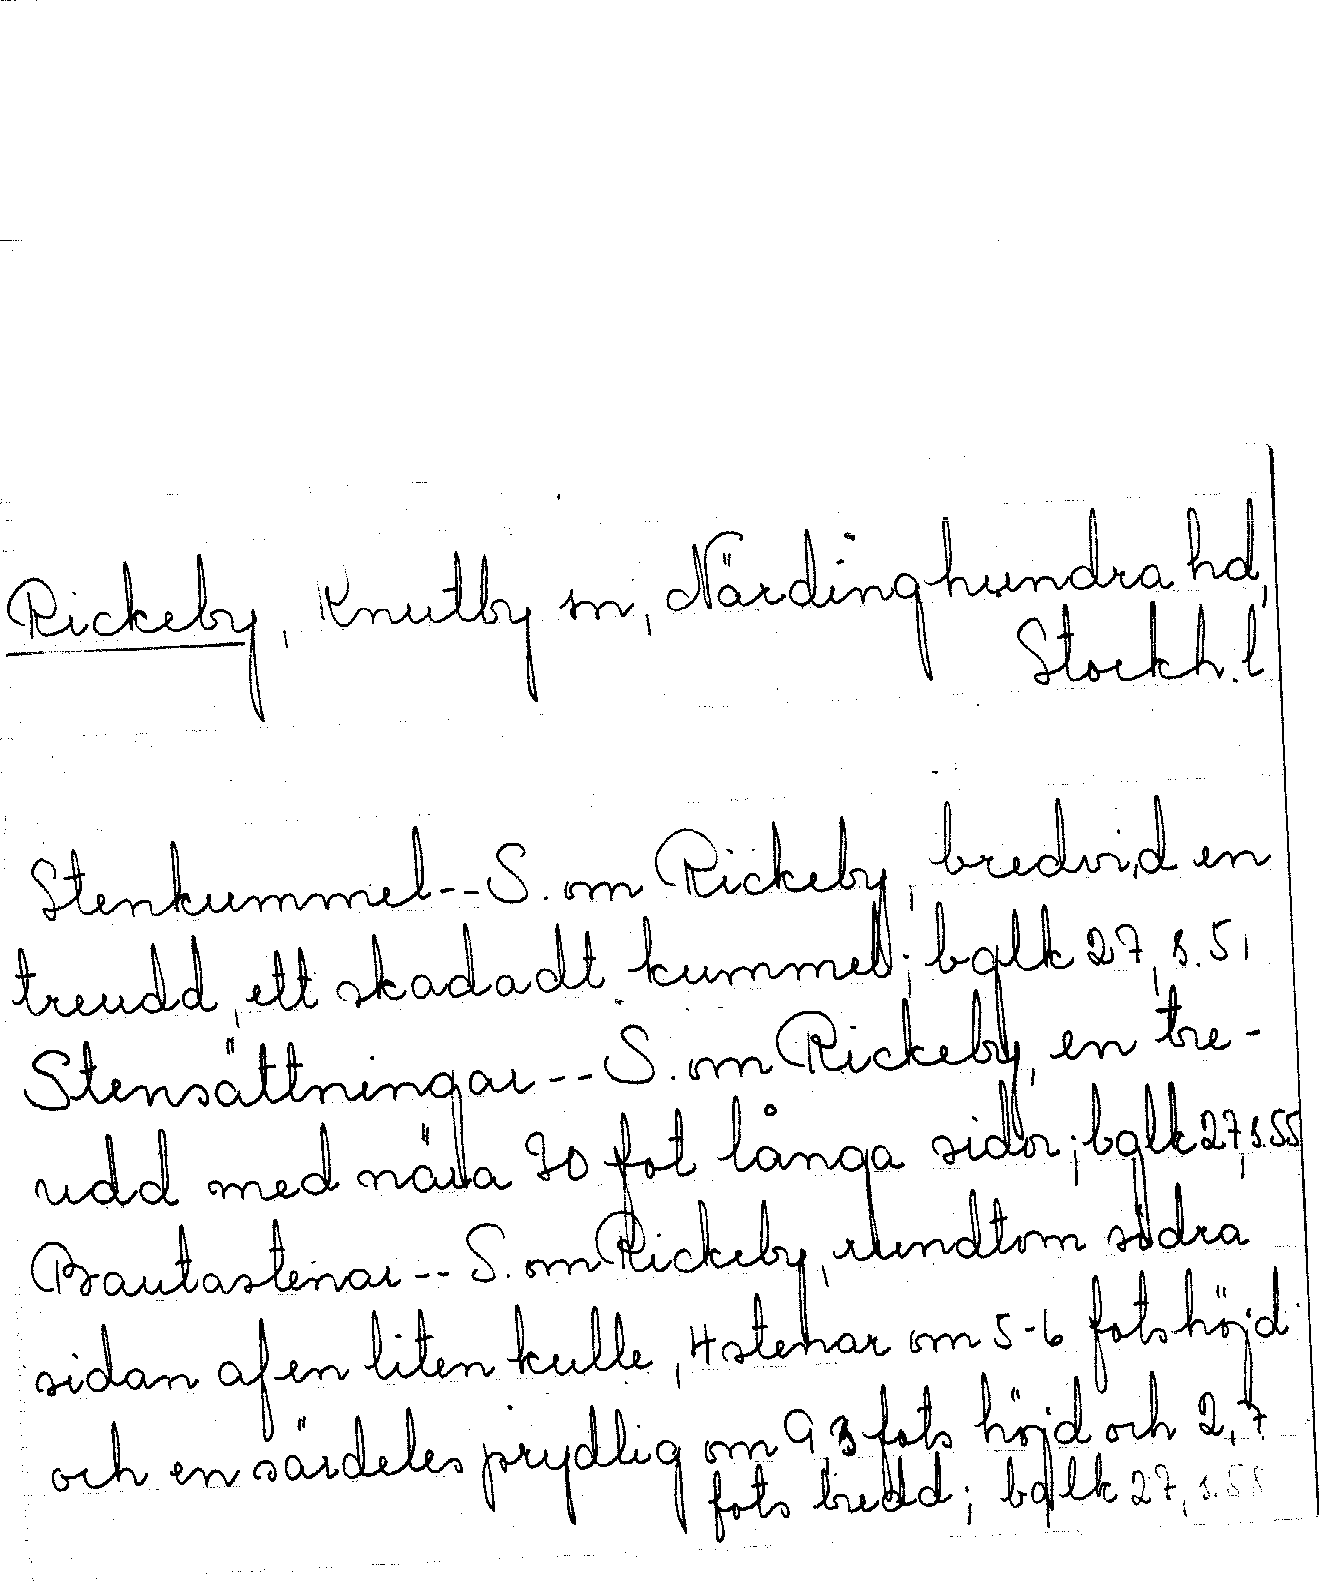 Rickeby, Knutby sn, Närdinghundra hd,
Stockh. l
Stenkummel -- S. om Rickeby, bredvid en
treudd, ett skadadt kummel; bglk 27, s. 51
Stensättningar -- S. om Rickeby, en tre-
udd med nära 30 fot långa sidor; bglk 27, s. 55
Bautastenar -- S. om Rickeby, rundtom södra
sidan af en liten kulle, 4 stenar om 5-6 fots höjd
och en särdeles prydlig om 9,3 fots höjd och 2,7
fots bredd; bglk 27, s. 58